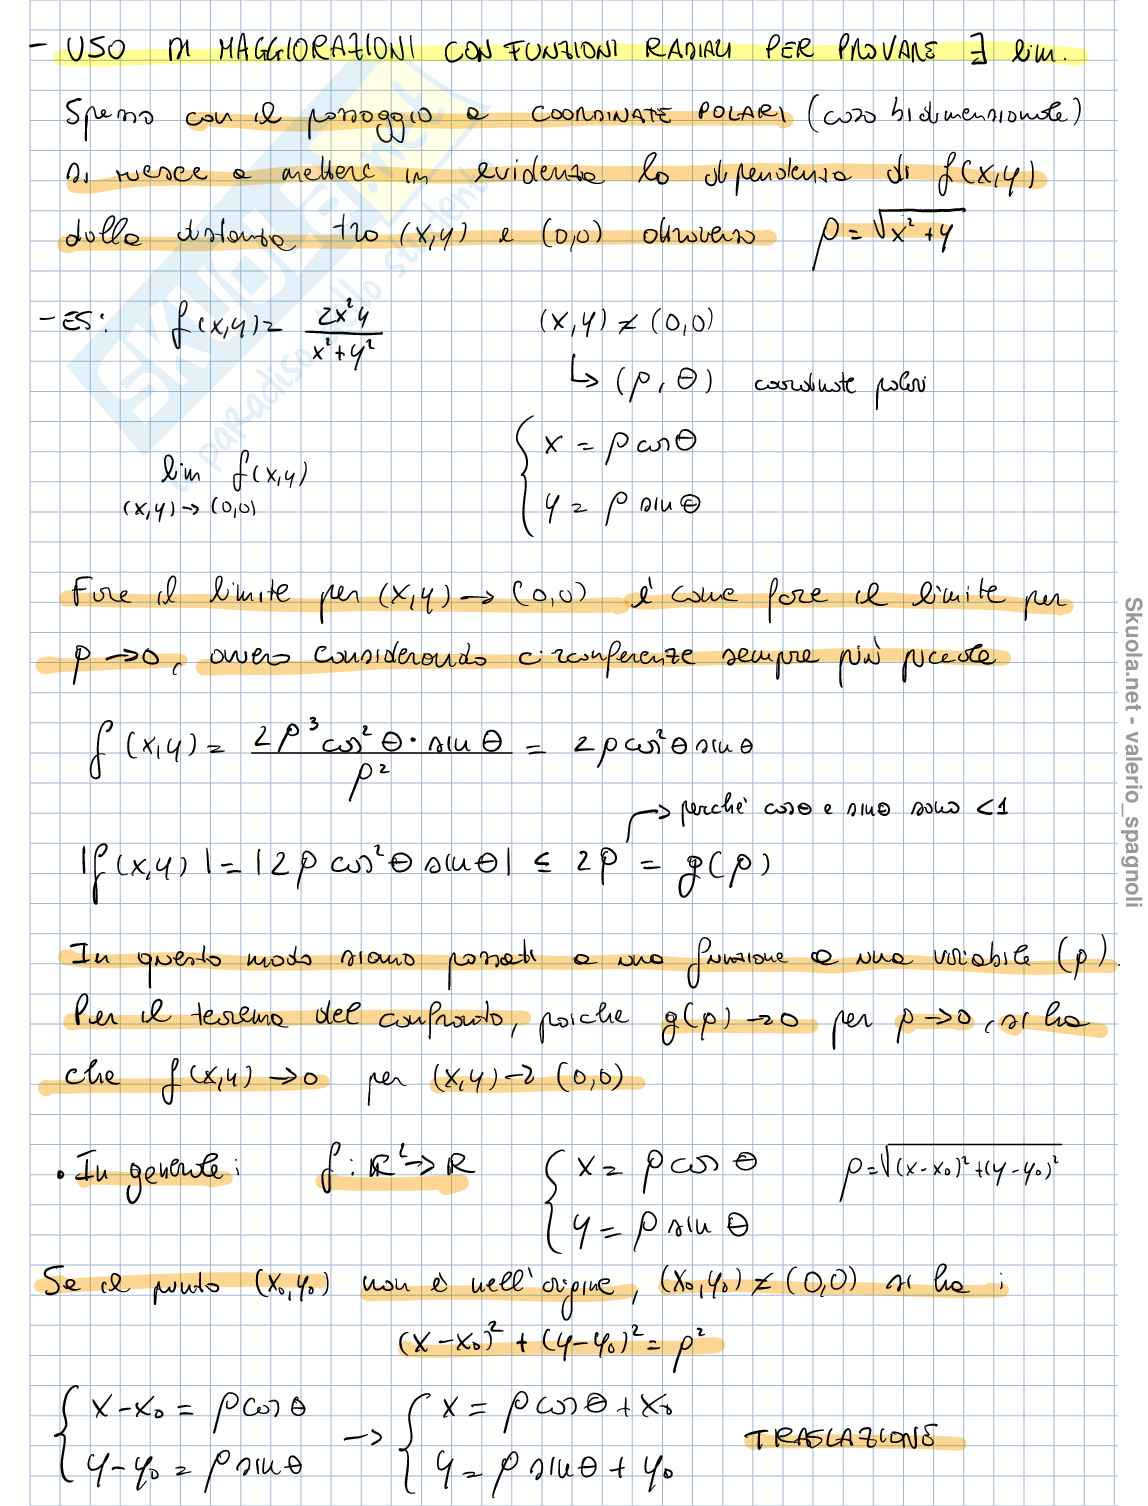 - USO DI MAGGIORAZIONI CON FUNZIONI RADIALI PER PROVARE ∃ lim.
Spesso con il passaggio a COORDINATE POLARI (caso bidimensionale)
si riesce a mettere in evidenza la dipendenza di f(x,y)
dalla distanza tra (x,y) e (0,0) attraverso ρ = √(x² + y)
- ES: f(x,y) = 2x²y / (x² + y²) (x,y) ≠ (0,0)
↳ (ρ, θ) coordinate polari
{ x = ρ cos θ
lim f(x,y)
(x,y) → (0,0)
{ y = ρ sin θ
Fare il limite per (x,y) → (0,0) è come fare il limite per
ρ → 0, ovvero considerando circonferenze sempre più piccole
f(x,y) = 2ρ³ cos² θ · sin θ / ρ² = 2ρ cos² θ sin θ
→ perché cos θ e sin θ sono < 1
|f(x,y)| = |2ρ cos² θ sin θ| ≤ 2ρ = g(ρ)
In questo modo siamo passati a una funzione a una variabile (ρ).
Per il teorema del confronto, poiche g(ρ) → 0 per ρ → 0, si ha
che f(x,y) → 0 per (x,y) → (0,0)
• In generale: f: ℝ² → ℝ { x = ρ cos θ ρ = √((x - x₀)² + (y - y₀)²)
{ y = ρ sin θ
Se il punto (x₀,y₀) non è nell'origine, (x₀,y₀) ≠ (0,0) si ha:
(x - x₀)² + (y - y₀)² = ρ²
{ x - x₀ = ρ cos θ → { x = ρ cos θ + x₀
TRASLAZIONE
{ y - y₀ = ρ sin θ { y = ρ sin θ + y₀
Skuola.net - valerio_spagnoli